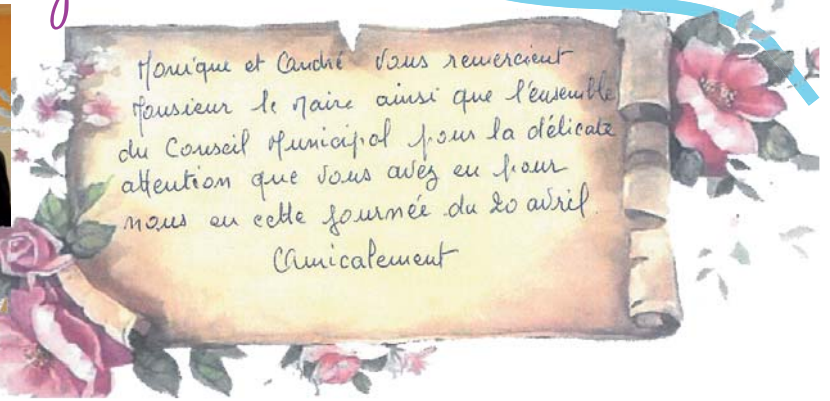 Monique et André vous remercient
Monsieur le Maire ainsi que l'ensemble
du Conseil Municipal pour la délicate
attention que vous avez eu pour
nous en cette journée du 20 avril.
Amicalement